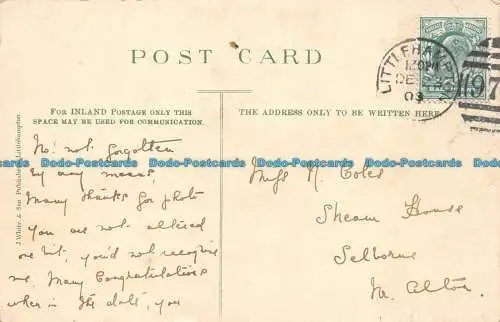 POST CARD
LITTLEHA
DE
03
97
FOR INLAND POSTAGE ONLY THIS
SPACE MAY BE USED FOR COMMUNICATION.
THE ADDRESS ONLY TO BE WRITTEN HERE.
J. White & Son Publishers, Littlehampton
No: not forgotten
by any means,
Many thanks for photo
You are not altered
one bit, you'd not recognise
me. Many Congratulations
when is the date, you
Miss N. Coles
Sheam House
Selborne
Nr. Alton.
Dodo-Postcards Dodo-Postcards Dodo-Postcards Dodo-Postcards